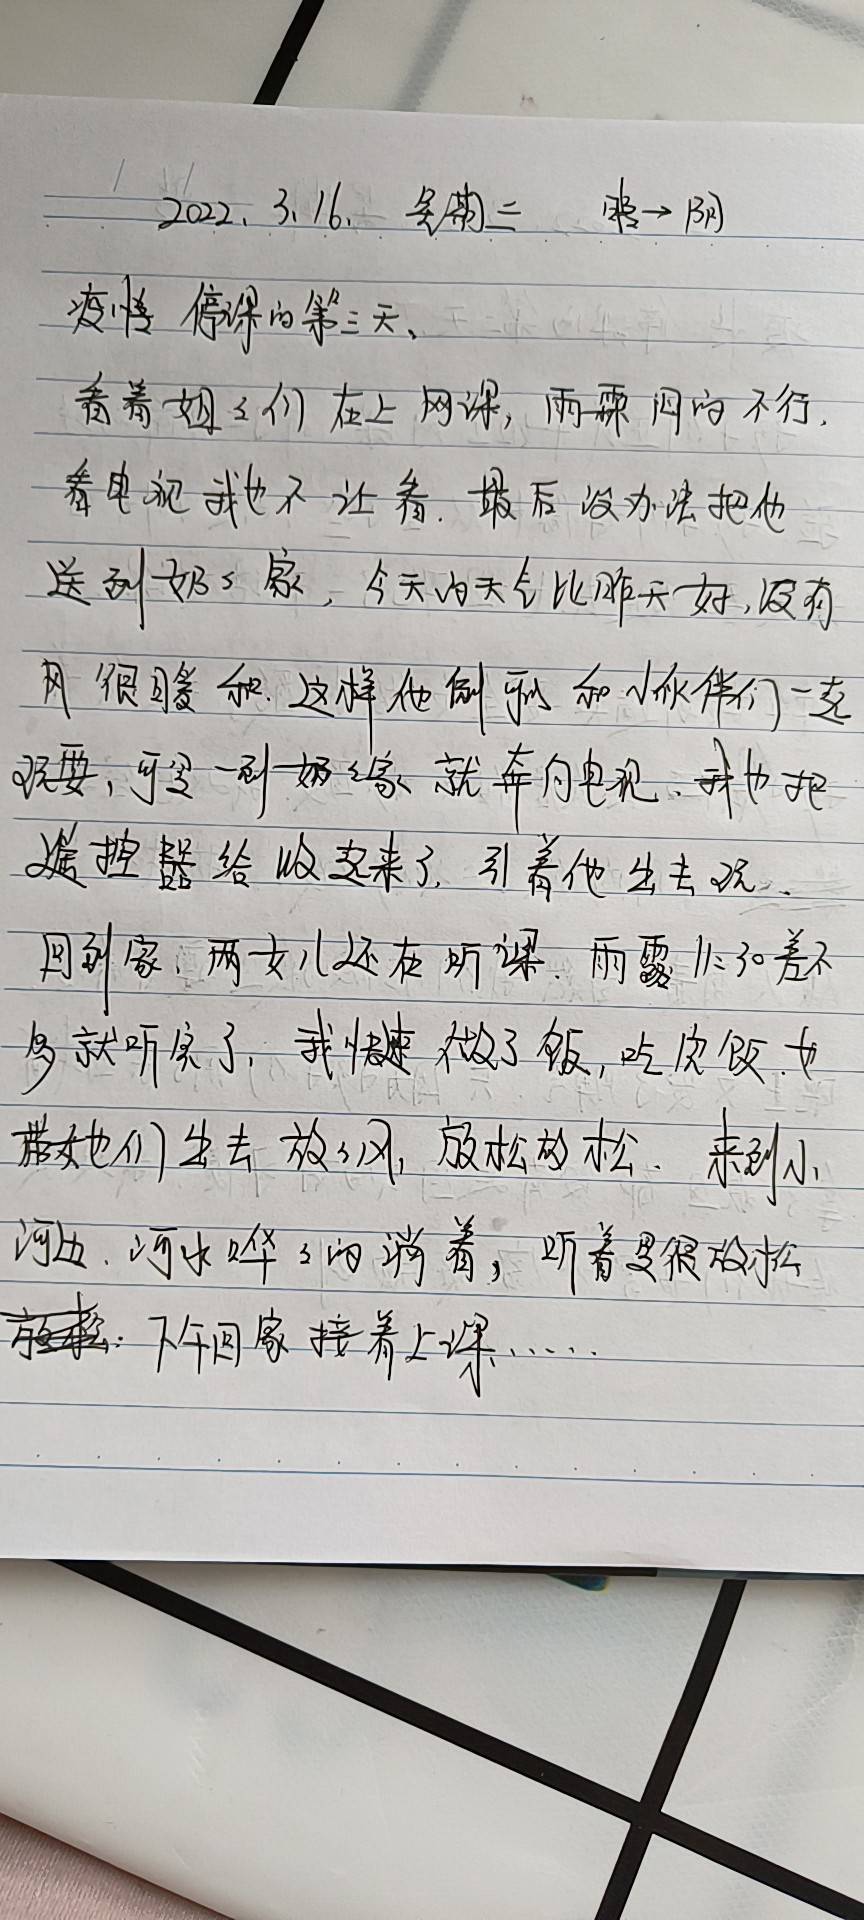 2022.3.16. 星期三 晴→阴
疫情停课的第三天、
看着姐ㄑ们在上网课，雨霖闷的不行.
看电视我也不让看.最后没办法把他
送到奶ㄑ家，今天的天气比昨天好，没有
风很暖和.这样他倒可以和小伙伴们一起
玩耍，可是一到奶ㄑ家就奔向电视.我也把
遥控器给收起来了，引着他出去玩.
回到家，两女儿还在听课.雨露11:30差不
多就听完了，我快速做了饭，吃完饭.也
带她们出去放ㄑ风，放松放松.来到小
河边.河水哗ㄑ的淌着，听着是很放松
下午回家接着上课......